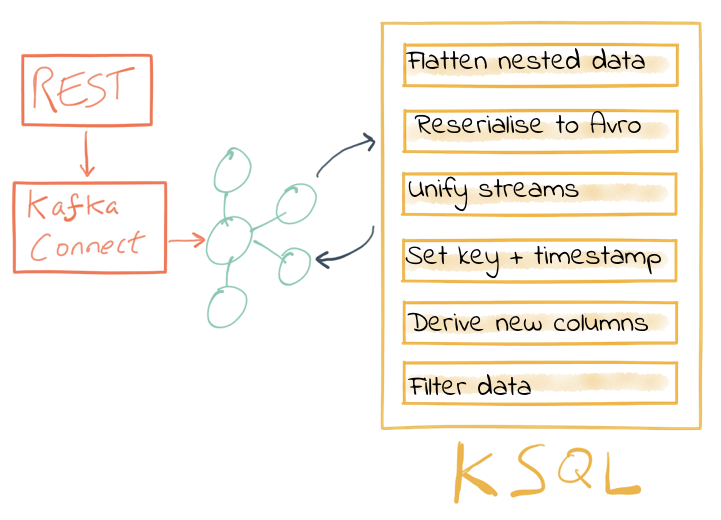 REST
Kafka
Connect
Flatten nested data
Reserialise to Avro
Unify streams
Set key + timestamp
Derive new columns
Filter data
KSQL